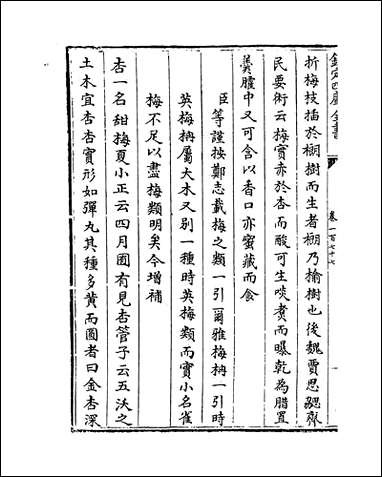 欽定四庫全書
卷一百七十七
折梅枝插於棡樹而生者棡乃榆樹也後魏賈思勰齊
民要術云梅實赤於杏而酸可生啖煑而曝乾為腊置
羮臛中又可含以香口亦蜜藏而食
臣等謹按鄭志載梅之類一引爾雅梅柟一引時
英梅柟屬大木又别一種時英梅類而實小名雀
梅不足以盡梅類明矣今增補
杏一名甜梅夏小正云四月囿有見杏管子云五沃之
土木宜杏杏實形如彈丸其種多黄而圓者曰金杏深